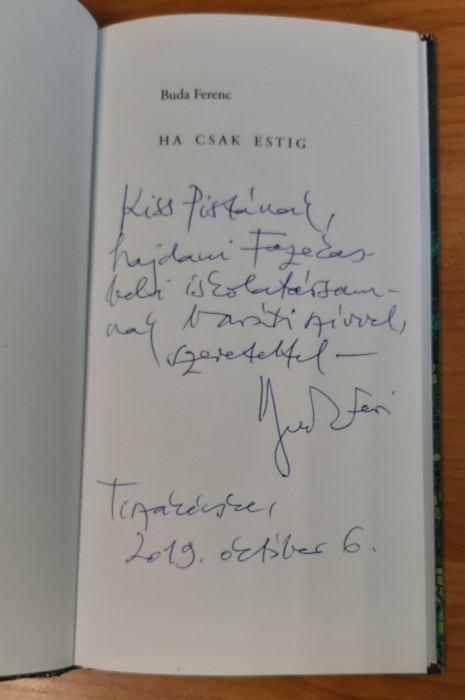 Buda Ferenc
HA CSAK ESTIG
Kiss Pistának,
hajdani Fazekas
beli iskolatársam-
nak baráti szívvel,
szeretettel —
Buda Feri
Tiszakécske,
2019. október 6.